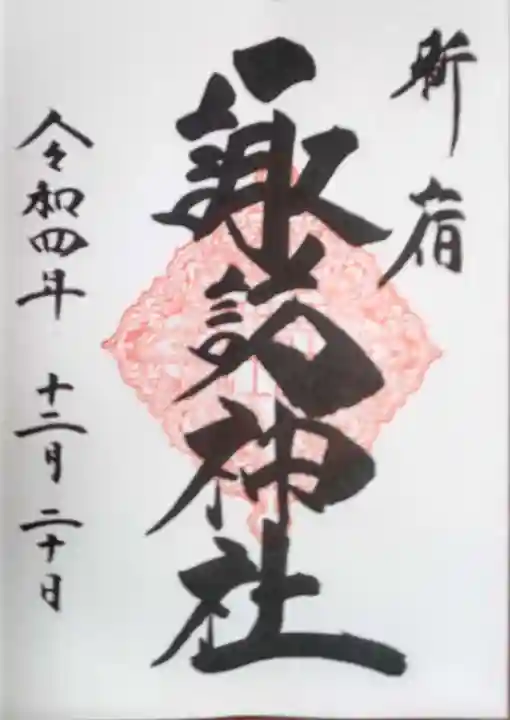 新宿
諏訪神社
令和四年 十二月 二十日